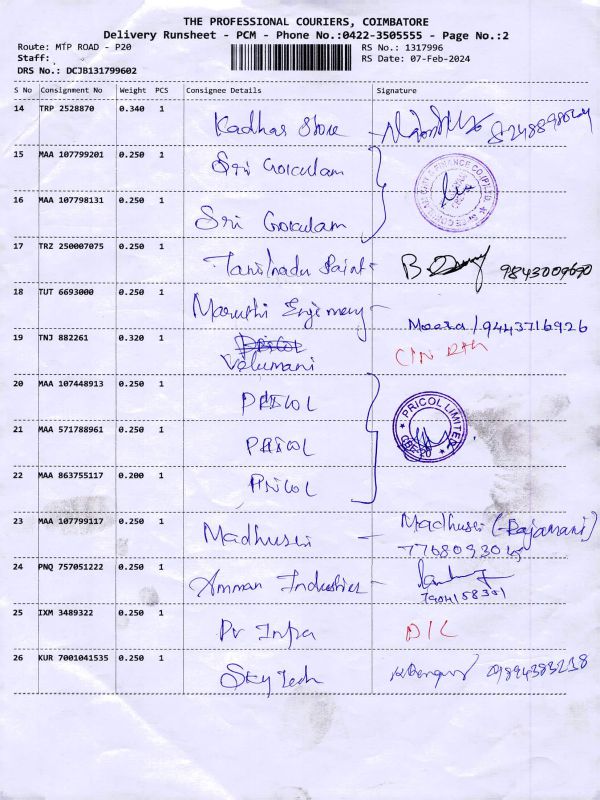 THE PROFESSIONAL COURIERS, COIMBATORE
Delivery Runsheet - PCM - Phone No.:0422-3505555 - Page No.:2
Route: MTP ROAD - P20 RS No.: 1317996
Staff: RS Date: 07-Feb-2024
DRS No.: DCJB131799602
S No Consignment No Weight PCS Consignee Details Signature
14 TRP 2528870 0.340 1 Kadhar Store
15 MAA 107799201 0.250 1 Sri Gokulam
16 MAA 107798131 0.250 1 Sri Gokulam
17 TRZ 250007075 0.250 1 Tamilnadu Paint 9843009690
18 TUT 6693000 0.250 1 Maruthi Meera / 9443716926
19 TNJ 882261 0.320 1 Velumani
20 MAA 107448913 0.250 1 PRICOL
PRICOL LIMITED
21 MAA 571788961 0.250 1 PRICOL
22 MAA 863755117 0.200 1 PRICOL
23 MAA 107799117 0.250 1 Madhusri - Madhusri (Rajamani)
24 PNQ 757051222 0.250 1 Amman Industries - 7904158391
25 IXM 3489322 0.250 1 Pv Infra D/L
26 KUR 7001041535 0.250 1 Sky Tech 9894383218